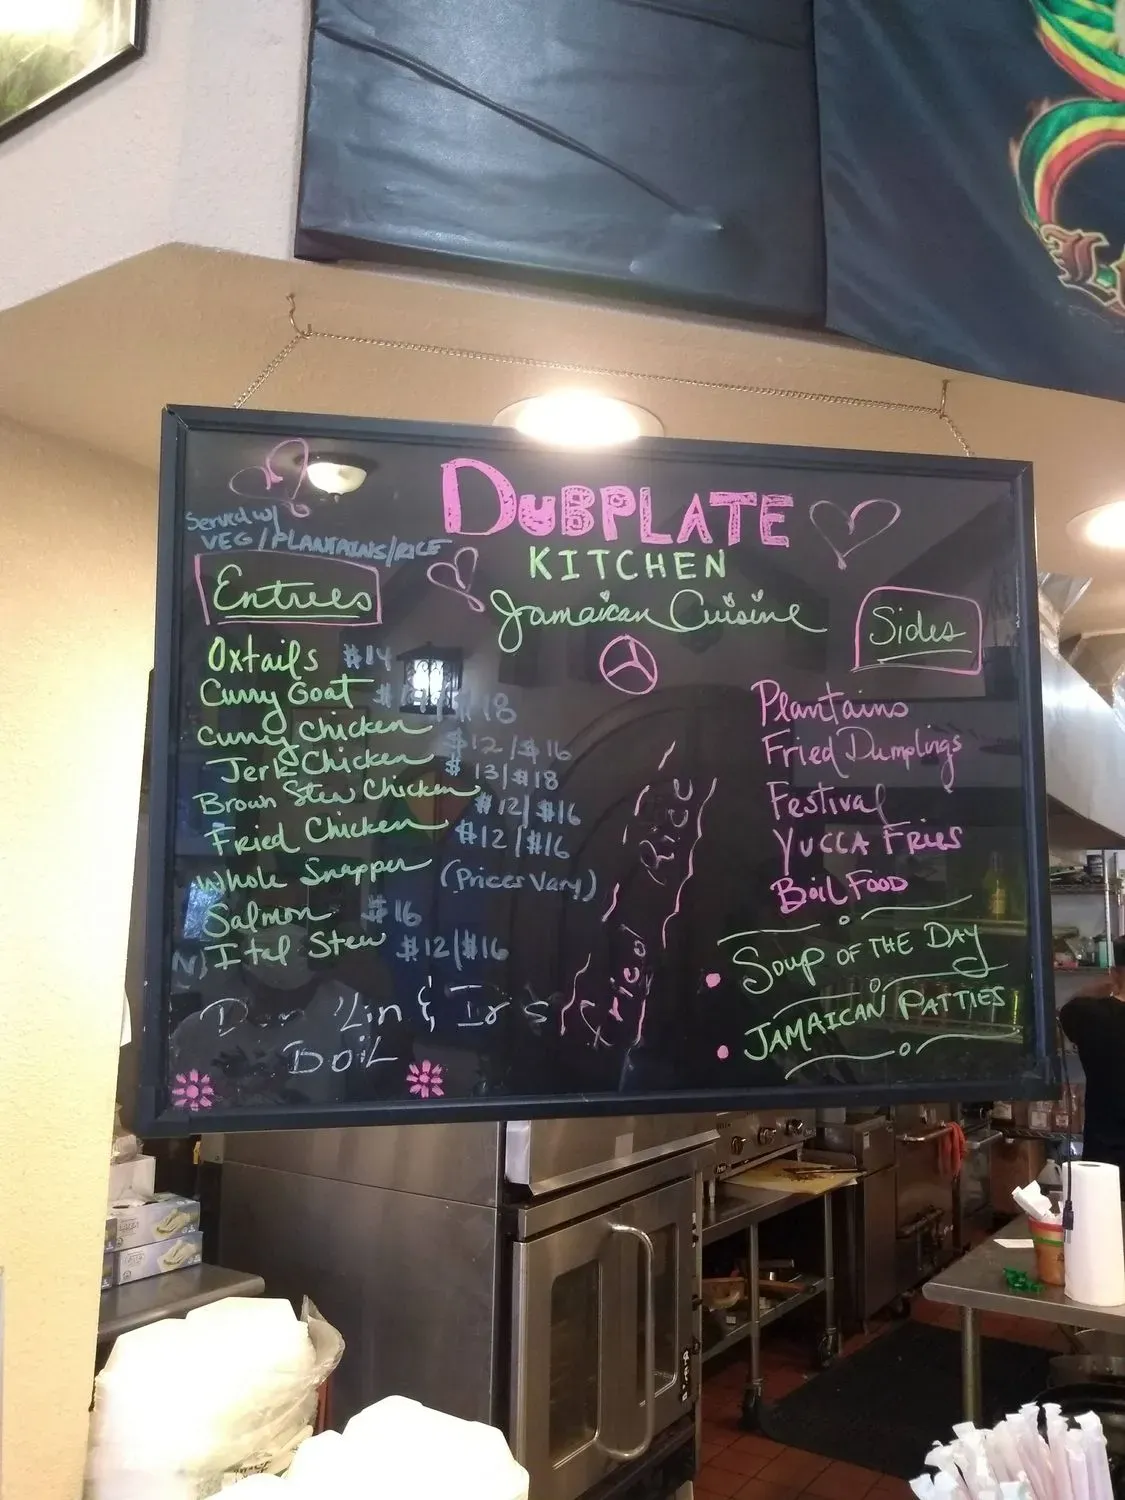 DUBPLATE
KITCHEN
Jamaican Cuisine
Served w/
VEG/PLANTAINS/RICE
Entrees
Oxtails $14
Curry Goat $18
Curry Chicken $12/$16
Jerk Chicken $13/$18
Brown Stew Chicken $12/$16
Fried Chicken $12/$16
Whole Snapper (Prices Vary)
Salmon $16
Ital Stew $12/$16
BOIL
Rice
Sides
Plantains
Fried Dumplings
Festival
YUCCA FRIES
Boil FOOD
Soup OF THE DAY
JAMAICAN PATTIES